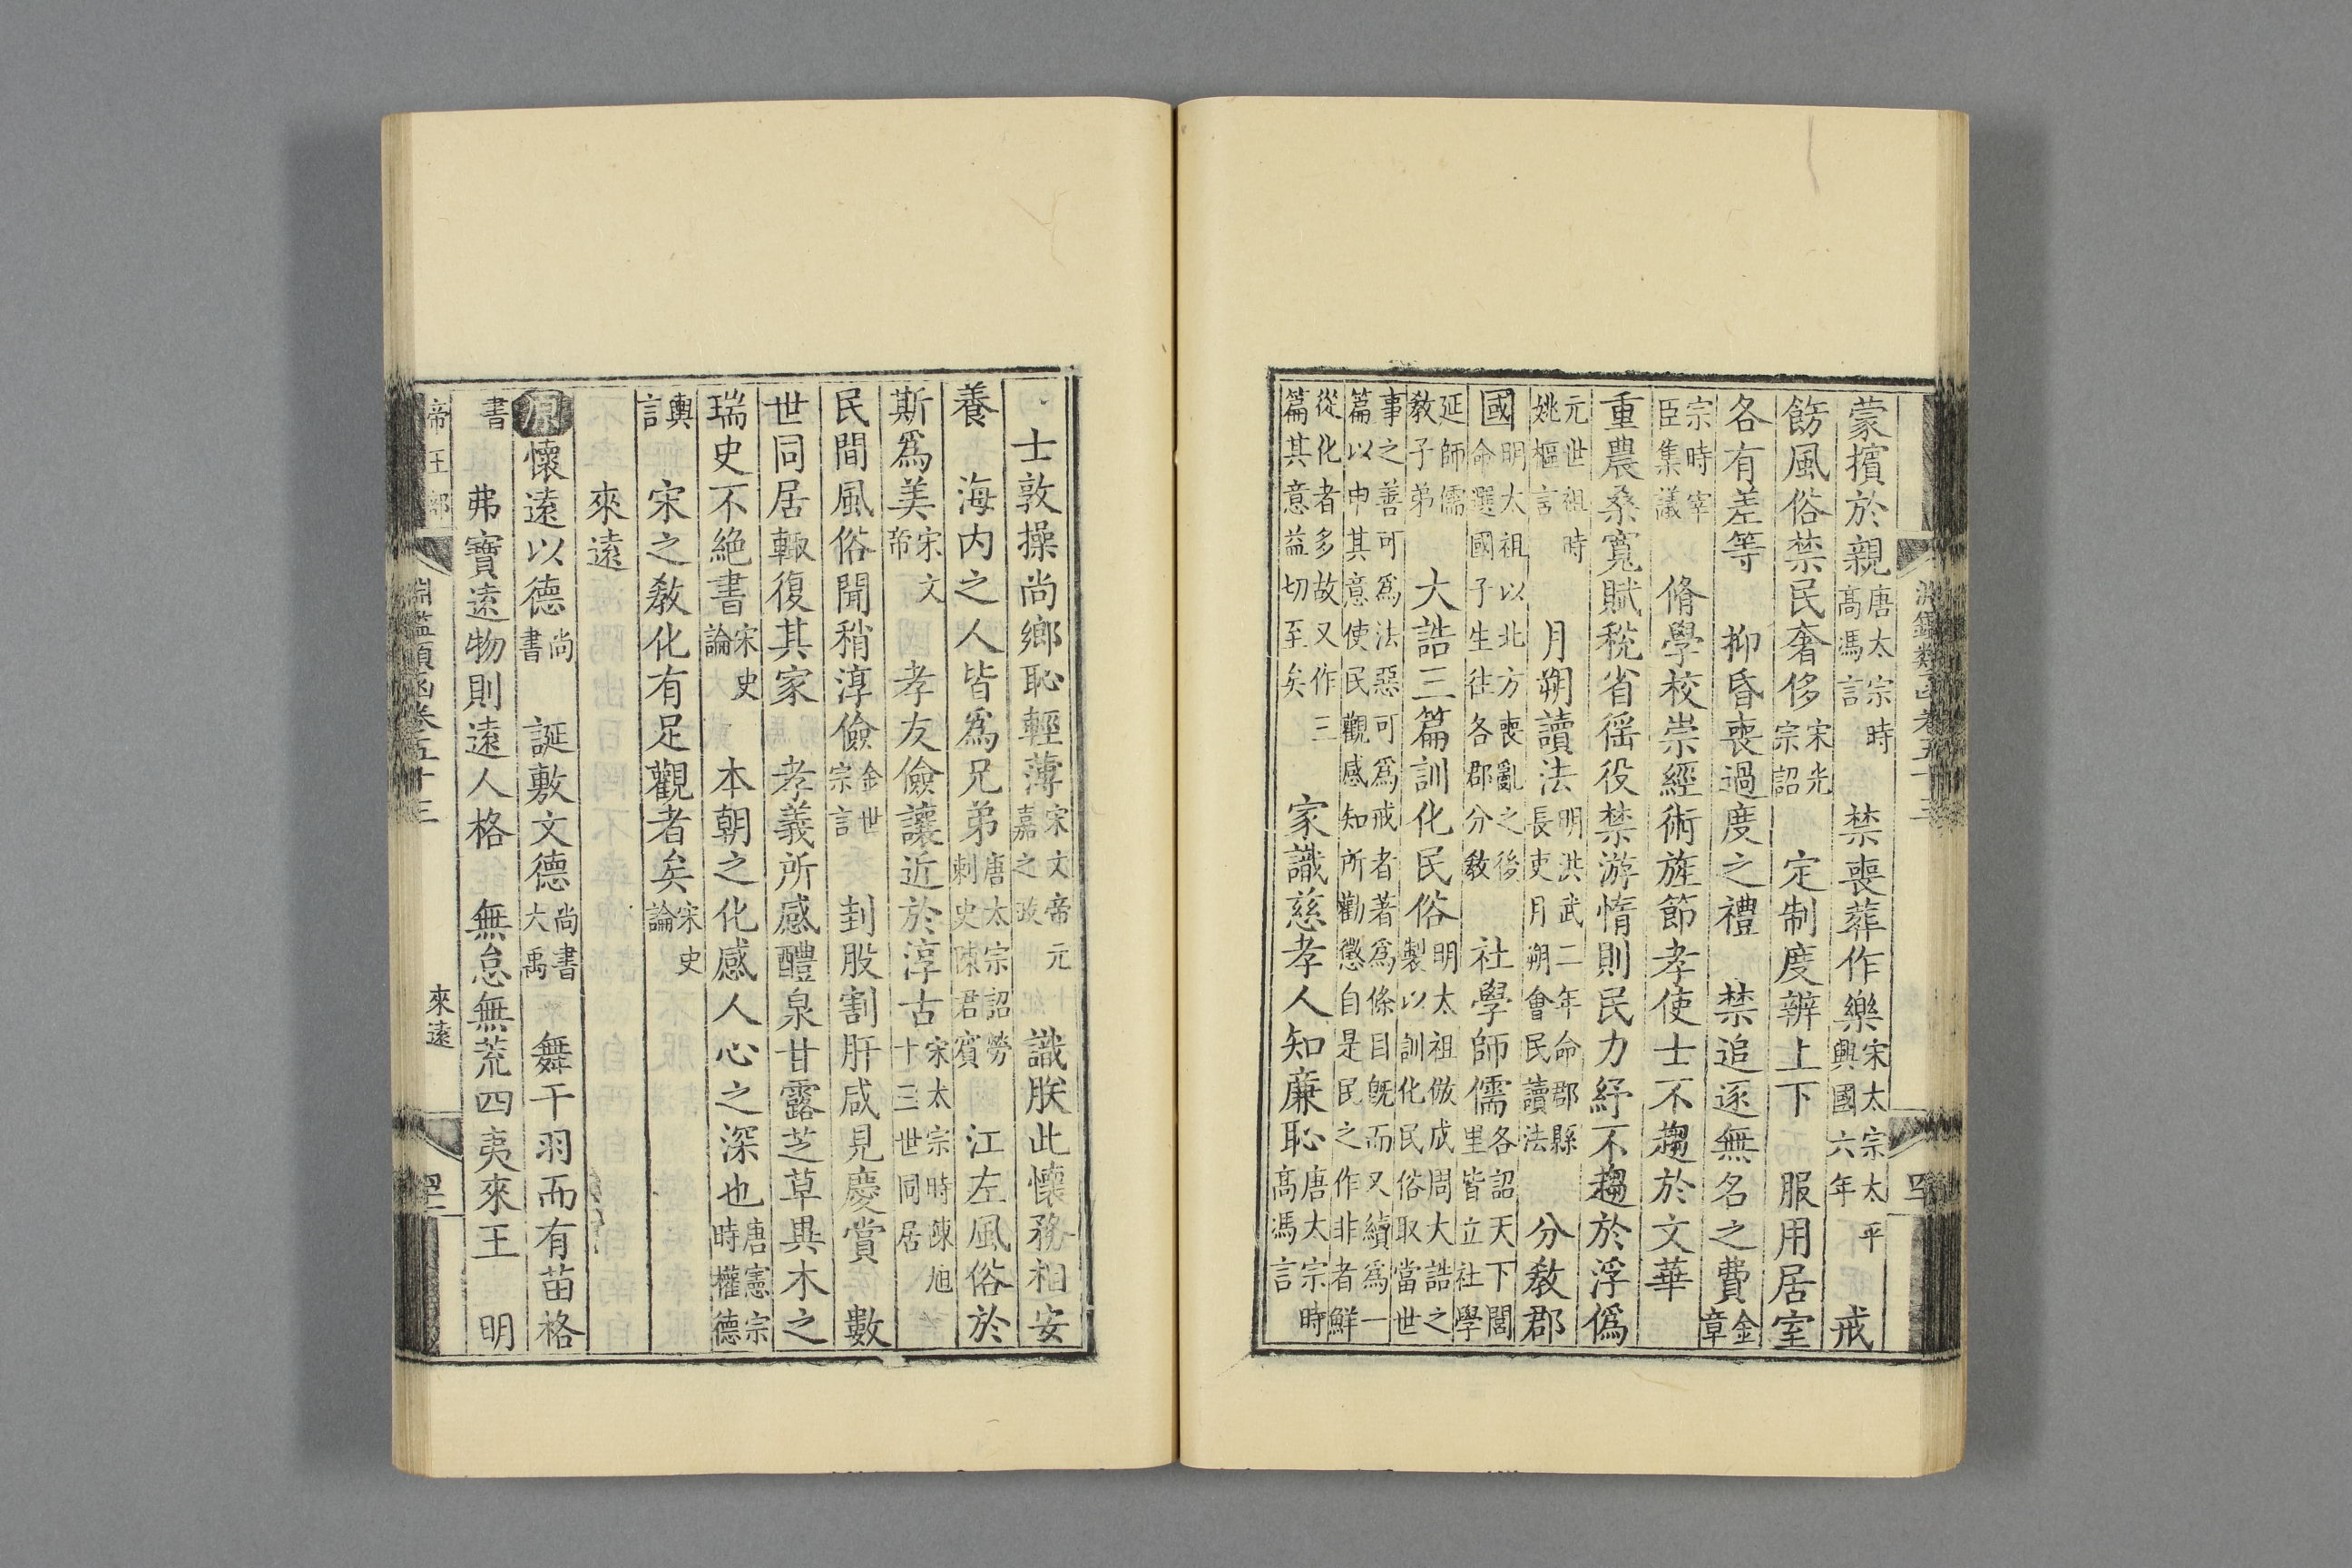 淵鑑類函卷五十三
蒙擯於親唐太宗時高馮言 禁喪葬作樂宋太宗太平興國六年 戒
飭風俗禁民奢侈宋光宗詔 定制度辨上下 服用居室
各有差等 抑昏喪過度之禮 禁追逐無名之費金章
宗時宰臣集議 脩學校崇經術旌節孝使士不趨於文華
重農桑寬賦稅省徭役禁游惰則民力紓不趨於浮僞
元世祖時姚樞言 月朔讀法明洪武二年命郡縣長吏月朔會民讀法 分敎郡
國明太祖以北方喪亂之後命選國子生往各郡分敎 社學師儒各詔天下閭里皆立社學
延師儒敎子弟 大誥三篇訓化民俗明太祖倣成周大誥之製以訓化民俗取當世
事之善可爲法惡可爲戒者著爲條目旣而又續爲一篇以申其意使民觀感知所勸懲自是民之作非者鮮
從化者多故又作三篇其意益切至矣 家識慈孝人知廉恥唐太宗時高馮言
士敦操尚鄉恥輕薄宋文帝元嘉之政 識朕此懷務相安
養 海内之人皆爲兄弟唐太宗詔勞刺史陳君賓 江左風俗於
斯爲美宋文帝 孝友儉讓近於淳古宋太宗時陳旭十三世同居
民間風俗聞稍淳儉金世宗言 刲股割肝咸見慶賞 數
世同居輙復其家 孝義所感醴泉甘露芝草異木之
瑞史不絶書宋史論 本朝之化感人心之深也唐憲宗時權德
輿言 宋之敎化有足觀者矣宋史論
來遠
原懷遠以德尚書 誕敷文德尚書大禹 舞干羽而有苗格
書 弗寶遠物則遠人格 無怠無荒四夷來王 明
帝王部 淵鑑類函卷五十三 來遠